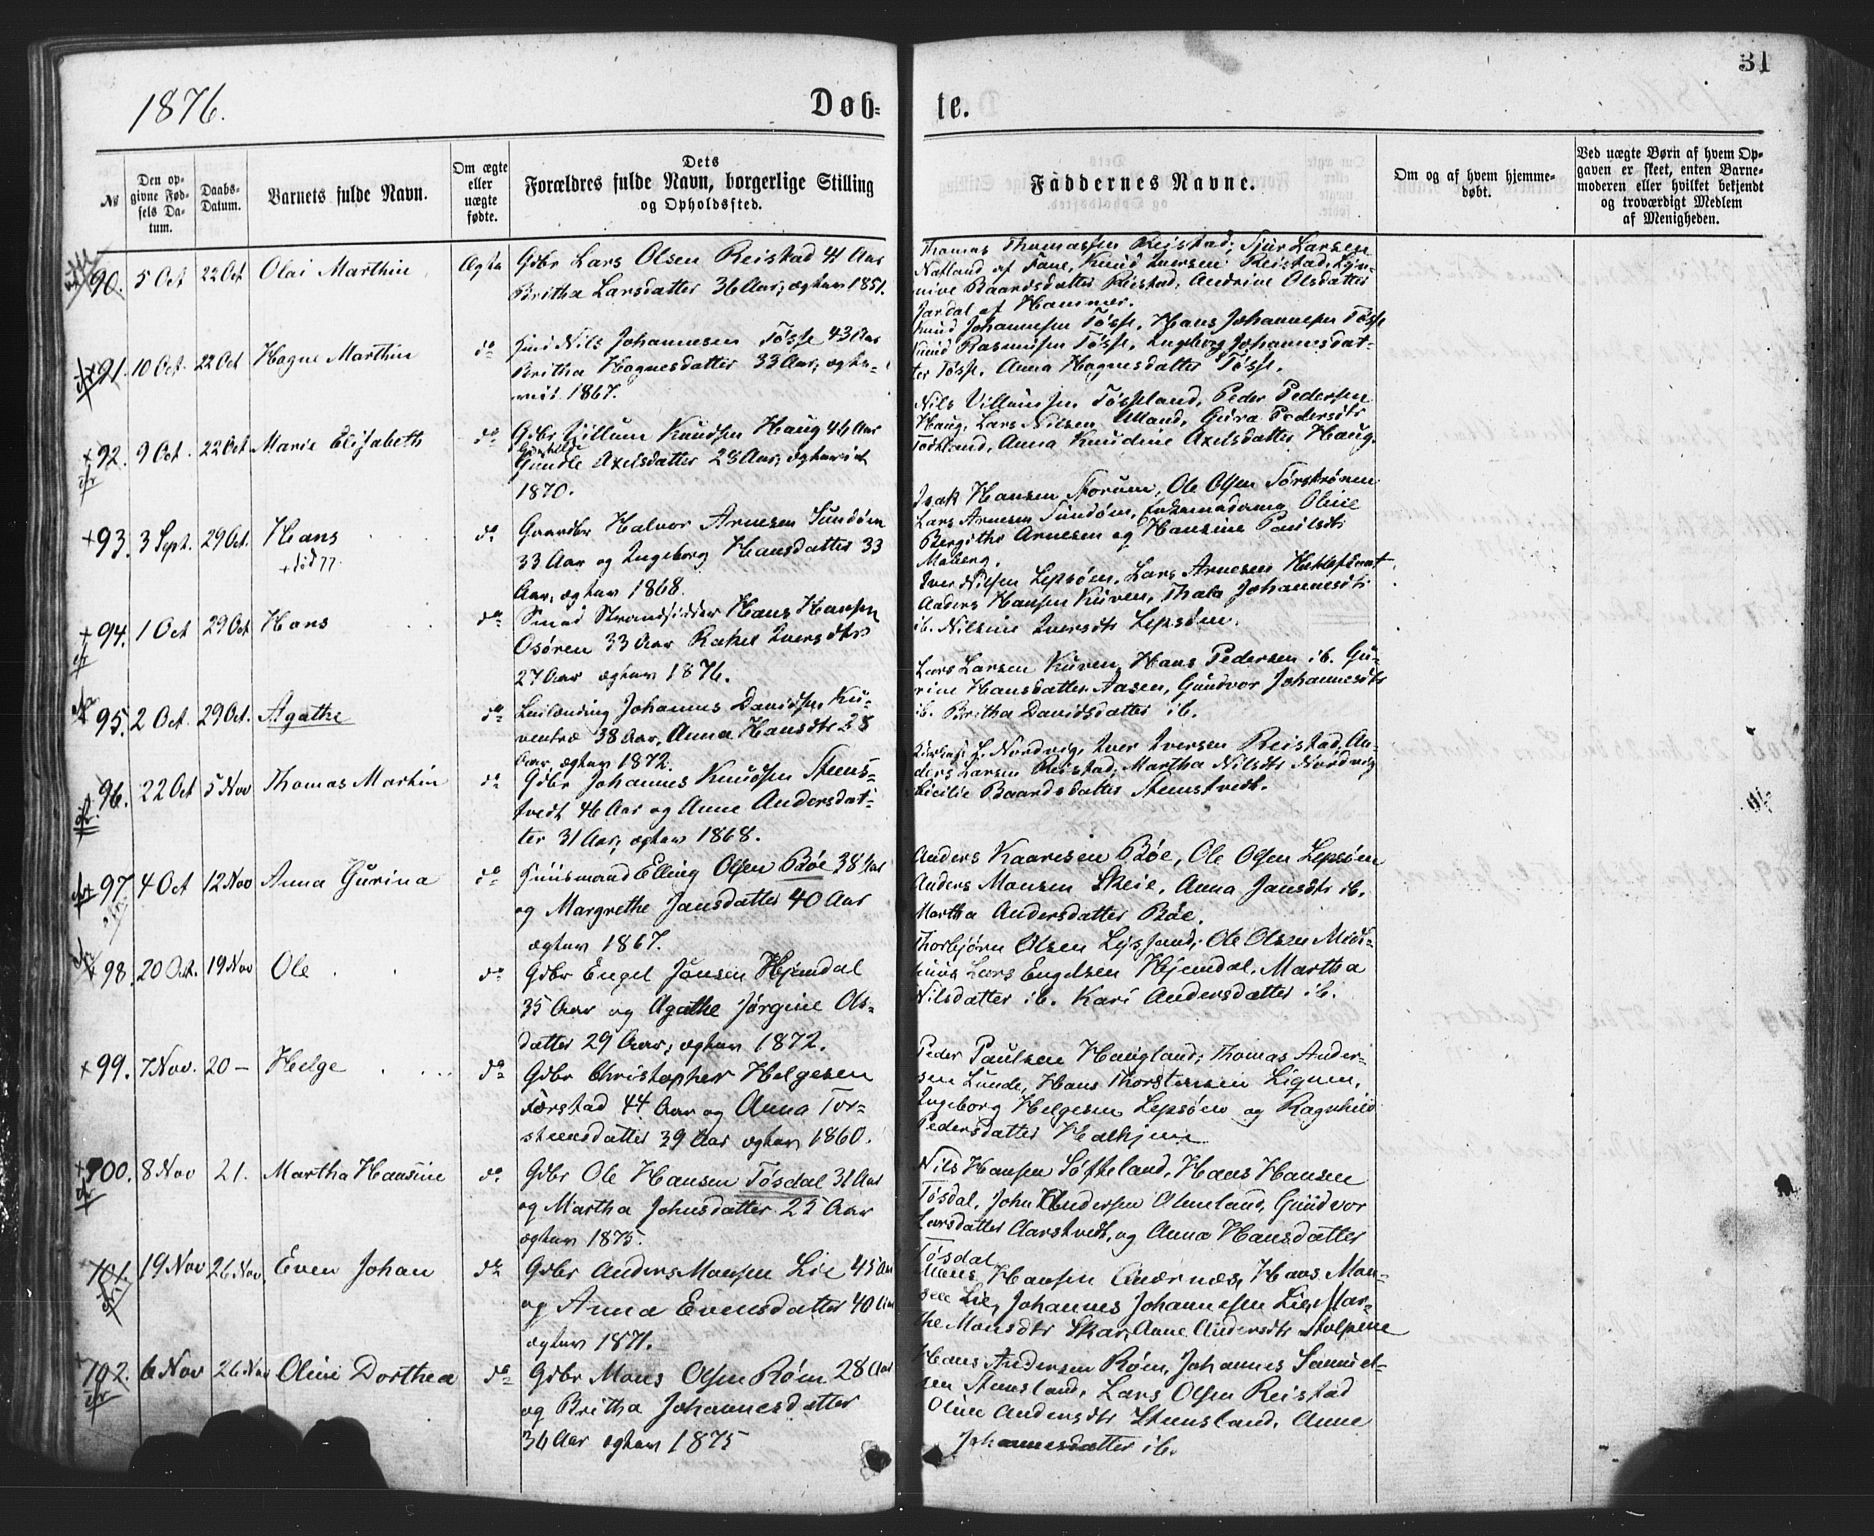 1876.
Døb-
te.
31
№
Den op-
givne Fød-
sels Da-
tum.
Daabs-
Datum.
Barnets fulde Navn.
Om ægte
eller
uægte
fødte.
Dets
Forældres fulde Navn, borgerlige Stilling
og Opholdssted.
Faddernes Navne.
Om og af hvem hjemme-
døbt.
Ved uægte Børn af hvem Op-
gaven er skeet, enten Barne-
moderen eller hvilket bekjendt
og troværdigt Medlem
af Menigheden.
90. 5 Oct 22 Oct Olai Marthin Ægte Gdbr Lars Olsen Reistad 41 Aar
Britha Larsdatter 36 Aar, ægtev 1851.
Thomas Thomassen Reistad, Sjur Larsen
Natland af Fane, Knud Iversen Reistad,
Baardsdatter Reistad, Andrine Olsdatter
Jardal af Hammer.
91. 10 Oct. 22 Oct Hagne Marthin do Nils Johannesen Tøsse 43 Aar
Britha Hagnesdatter 33 Aar, ægte-
viet 1867.
Knud Johannesen Tøsse, Hans Johannesen Tøsse
Knud Rasmusen Tøsse, Ingeborg Johannesdat-
ter Tøsse, Anna Hagnesdatter Tøsse.
92. 9 Oct. 22 Oct Marie Elisabeth do Gdbr Villum Knudsen Haug 46 Aar
Gundle Axelsdatter 28 Aar, ægteviet
1870.
Nils Villumsen Tøsseland, Peder Pedersen
Haug, Lars Nilsen Ulland, Guro Pedersdtr
Anna Knudine Axelsdatter Haug.
93. 3 Sept. 29 Oct. Hans do Gaardbr Halvor Arnesen Sundøen
+ død 77.
33 Aar og Ingeborg Hansdatter 33
Aar, ægtev 1868.
Isak Hansen Forum, Ole Olsen Sørstrønen
Lars Arnesen Sundøen, Oline
Bergithe Arnesen og Hansine Poulsdtr
Moberg.
94. 1 Oct 29 Oct Hans do Smed Strandsidder Hans Hansen
Osøren 33 Aar Rakel Iversdtr
27 Aar ægtev 1876.
Iver Nilsen Lepsøen, Lars Arnesen
Anders Hansen Kuven, Thala Johannesdtr
ib. Nilsine Iversdtr Lepsøen.
95. 2 Oct 29 Oct. Agathe do Johannes Davidsen Ku-
ventræ 38 Aar, Anna Hansdtr 28
Aar, ægtev 1872.
Lars Larsen Kuven, Hans Pedersen ib. Gu-
rine Hansdatter Aasen, Gundvor Johannesdtr
ib. Britha Davidsdatter ib.
96. 22 Oct 5 Nov Thomas Martin do Gdbr Johannes Knudsen Stens-
tvedt 46 Aar og Anne Andersdat-
ter 31 Aar, ægtev 1868.
L. Nordvig, Iver Iversen Reistad, An-
ders Larsen Reistad, Martha Nilsdtr Nordvig
Cecilie Baardsdatter Stenstvedt.
97. 4 Oct 12 Nov Anna Gurina do Huusmand Elling Olsen Bøe 38 Aar
og Margrethe Jansdatter 40 Aar
ægtev 1867.
Anders Kaaresen Bøe, Ole Olsen Lepsøen
Anders Monsen Skeie, Anna Jansdtr ib.
Martha Andersdatter Bøe.
98. 20 Oct. 19 Nov Ole do Gdbr Engel Jonsen Hjemdal
35 Aar og Agathe Jørgine Ols-
datter 29 Aar, ægtev 1872.
Thorbjørn Olsen Lysfand, Ole Olsen Mid-
huus Lars Engelsen Hjemdal, Martha
Nilsdatter ib. Kari Andersdatter ib.
99. 7 Nov. 20 — Helge do Gdbr Christopher Helgesen
Færstad 44 Aar og Anna Tor-
stensdatter 39 Aar ægtev 1860.
Peder Paulsen Haugland, Thomas Ander-
sen Lunde, Hans Thorstensen Liguen,
Ingeborg Helgesen Lepsøen og Ragnhild
Pedersdatter Halhjem
100. 8 Nov 21. Martha Hansine do Gdbr Ole Hansen Tøsdal 31 Aar
og Martha Johnsdatter 25 Aar
ægtev 1875.
Nils Hansen Søfteland, Hans Hansen
Tøsdal, John Andersen Olmeland, Gundvor
Larsdatter Aarstvedt, og Anna Hansdatter
Tøsdal
101. 19 Nov 26 Nov. Even Johan do Gdbr Anders Monsen Lie 45 Aar
og Anna Evensdatter 40 Aar
ægtev 1871.
Mons Hansen Hans Mon-
sen Lie, Johannes Johannesen Lie, Mar-
the Monsdtr Skar, Anne Andersdtr Stolpene
102. 6 Nov 26 Nov Oline Dorthea do Gdbr Mons Olsen Røen 28 Aar
og Britha Johannesdatter
36 Aar ægtev 1875
Hans Andersen Røen, Johannes Samuel-
sen Stensland, Lars Olsen Reistad
Oline Andersdtr Stensland, Anne
Johannesdatter ib.